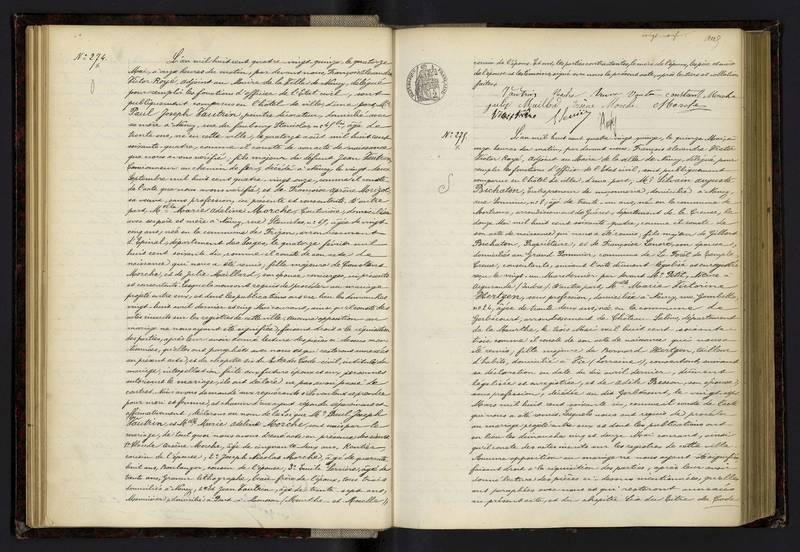 N° 274.
L'an mil huit cent quatre-vingt-quinze, le quatorze
Mai, à onze heures du matin, par devant nous, François Alexandre
Victor Royé, adjoint au Maire de la Ville de Nancy, délégué
pour remplir les fonctions d'officier de l'État civil, sont
publiquement comparus en l'hôtel de ville, d'une part Mr
Paul Joseph Vautrin, peintre décorateur, domicilié avec
sa mère à Nancy, rue du faubourg Stanislas, âgé de
trente ans, né en cette ville, le quatorze août mil huit cent
soixante-quatre, comme il conste de son acte de naissance
que nous avons vérifié, fils majeur de défunt Jean Vautrin,
au chemin de fer, décédé à Nancy, le vingt-deux
Septembre mil huit cent quatre-vingt-onze, comme il conste
de l'acte que nous avons vérifié, et de Françoise
sa veuve, sans profession, ici présente et consentante. D'autre
part, Melle Marie Adeline Morche, Couturière, domiciliée
avec ses père et mère à Nancy, rue Stanislas, n° 67, âgée de vingt-
cinq ans, née en la commune de arrondissement
d'Épinal, département des Vosges, le quatorze février mil
huit cent soixante-dix, comme il conste de son acte de
naissance qui nous a été remis, fille majeure de Constant
Morche, et de Julie Maillard, son épouse, concierges, ici présents
et consentants. Lesquels nous ont requis de procéder au mariage
projeté entre eux, et dont les publications ont eu lieu les dimanches
vingt-huit avril dernier et cinq Mai courant, ainsi qu'il conste des
actes inscrits sur les registres de cette ville. Aucune opposition au
mariage ne nous ayant été signifiée, faisant droit à la réquisition
des parties, après leur avoir donné lecture des pièces ci-dessus men-
tionnées, qu'elles ont paraphées avec nous et qui resteront annexées
au présent acte, et du chapitre six du titre du Code civil, intitulé du
mariage; interpellés en suite les futurs époux et les personnes
autorisant le mariage, ils ont déclaré ne pas avoir passé de
contrat. Nous avons demandé aux requérants s'ils veulent se prendre
pour mari et femme, et chacun d'eux ayant répondu séparément et
affirmativement, déclarons au nom de la Loi que Mr Paul Joseph
Vautrin et Melle Marie Adeline Morche sont unis par le
mariage, de tout quoi nous avons dressé acte, en présence des sieurs
Morche, âgé de cinquante-cinq ans, Rentier
cousin de l'épouse; 2° Joseph Nicolas Morche, âgé de quarante-
huit ans, Boulanger, cousin de l'épouse; 3° Emile Perrière, âgé de
trente ans, Graveur lithographe, beau-frère de l'époux, tous trois
domiciliés à Nancy, et Jean Vautrin, âgé de trente-sept ans,
Menuisier, domicilié à Pont-à-Mousson (Meurthe-et-Moselle),
cousin de l'époux. Et ont, les parties contractantes, la mère de l'époux, les père et mère
de l'épouse et les témoins, signé avec nous le présent acte, après lecture et collation
faites.
Vautrin
Morche
julie Maillard
Morche
Perrière
Royé
N° 275.
L'an mil huit cent quatre-vingt-quinze, le quinze Mai, à
onze heures du matin, par devant nous, François Alexandre Victor
Royé, Adjoint au Maire de la ville de Nancy, délégué pour
remplir les fonctions d'officier de l'État civil, sont publiquement
comparus en l'hôtel de ville, d'une part, Mr Silvain Auguste
Bichaton, Entrepreneur de maçonnerie, domicilié à Nancy,
rue n° 8, âgé de trente-un ans, né en la commune de
arrondissement de département de la Creuse, le
douze mai mil huit cent soixante-quatre, comme il conste de
son acte de naissance qui nous a été remis, fils majeur de
Bichaton, Propriétaire, et de Françoise son épouse,
domiciliés au Grand commune de La Forêt du Temple
Creuse, consentants suivant l'acte dûment légalisé et enregistré
reçu le vingt-un Mars dernier par devant Mr Petit, Notaire à
Aigurande (Indre), D'autre part, Melle Maria Victorine
Hertgen, sans profession, domiciliée à Nancy, rue Gambetta,
n° 24, âgée de trente-deux ans, née en la commune de
arrondissement de Château-Salins, département
de la Meurthe, le trois Mai mil huit cent soixante-
trois comme il conste de son acte de naissance qui nous a
été remis, fille majeure de Bernard Hertgen, tailleur
d'habits, domicilié à Vic, Lorraine, consentant suivant
sa déclaration en date du dix avril dernier, dûment
légalisée et enregistrée, et de Adèle Besson, son épouse,
sans profession, décédée au dit le vingt-sept
Mars mil huit cent soixante-dix, comme il conste de l'acte
qui nous a été remis. Lesquels nous ont requis de procéder
au mariage projeté entre eux, et dont les publications ont
eu lieu les dimanches cinq et douze Mai courant, ainsi
qu'il conste des actes inscrits sur les registres de cette ville.
Aucune opposition au mariage ne nous ayant été signifiée
faisant droit à la réquisition des parties, après leur avoir
donné lecture des pièces ci-dessus mentionnées, qu'elles
ont paraphées avec nous et qui resteront annexées
au présent acte, et du chapitre six du titre du Code